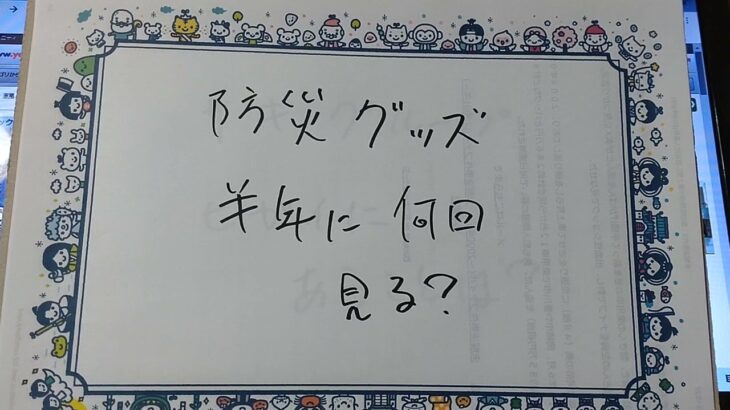 防災グッズ
半年に何回
見る?